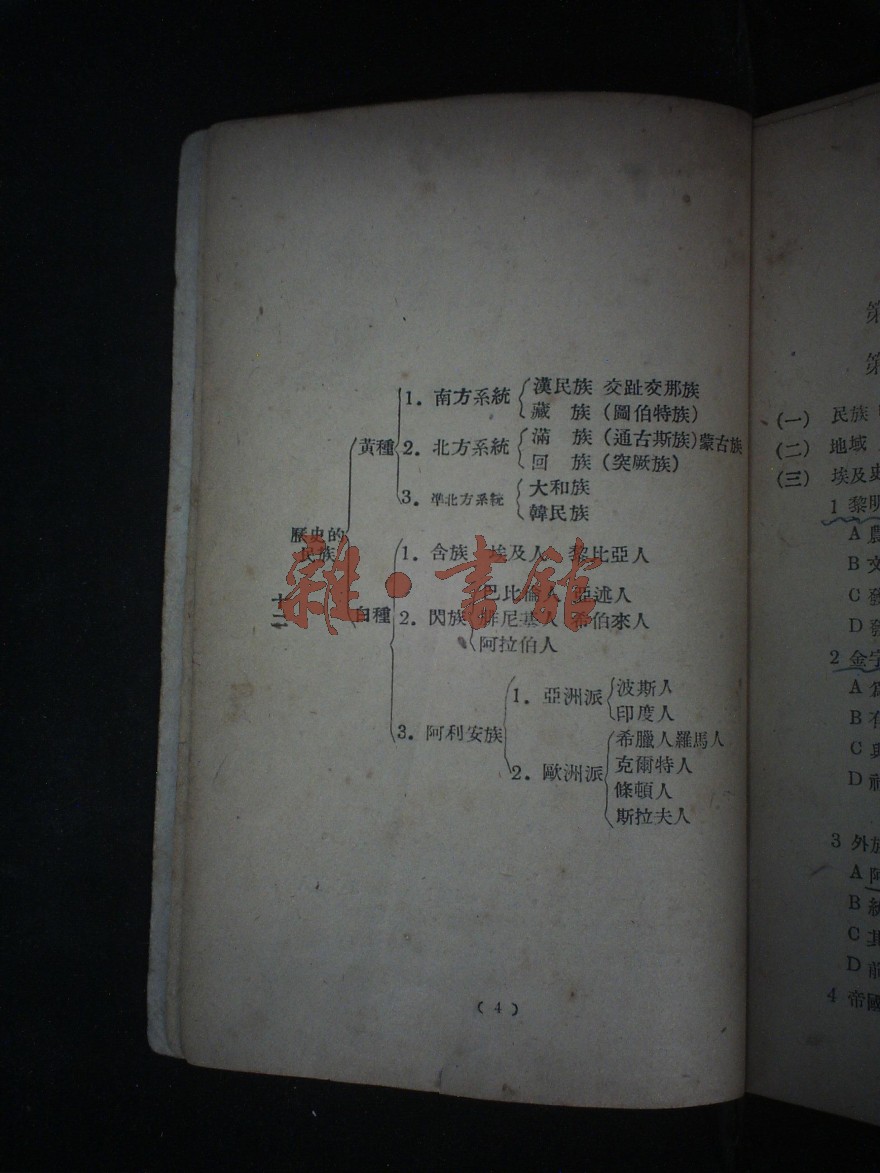 1. 南方系統 漢民族 交趾交那族
藏 族 (圖伯特族)
黃種 2. 北方系統 滿 族 (通古斯族) 蒙古族
回 族 (突厥族)
3. 準北方系統 大和族
韓民族
歷史的
民族
1. 含族 埃及人 黎比亞人
巴比倫人 亞述人
十二
白種 2. 閃族 腓尼基人 希伯來人
阿拉伯人
1. 亞洲派 波斯人
印度人
3. 阿利安族
希臘人羅馬人
2. 歐洲派 克爾特人
條頓人
斯拉夫人
(4)
雜·書館
第
第
(一) 民族
(二) 地域
(三) 埃及史
1 黎明
A 農
B 文
C 發
D 發
2 金字
A
B 有
C 與
D
3 外族
A 阿
B 統
C 其
D 前
4 帝國